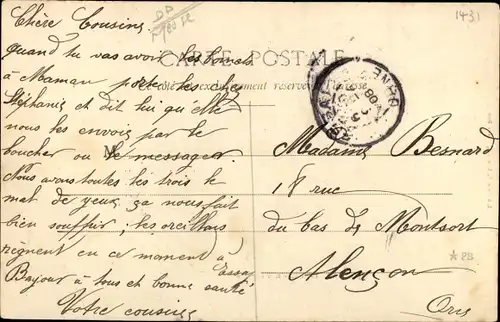 Chère Cousine
quand tu vas avoir les bonnets
à Maman porte les chez
Stéphanie et dit lui qu'elle
nous les envoie par le
boucher ou le messager.
Nous avons toutes les trois le
mal de yeux ça nous fait
bien souffrir, les oreillons
règnent en ce moment à Essay
Bonjour à tous et bonne santé
Votre cousine
CARTE POSTALE
exclusivement réservé
1431
Madame Besnard
18 rue
du bas de Montsort
Alençon
Orne